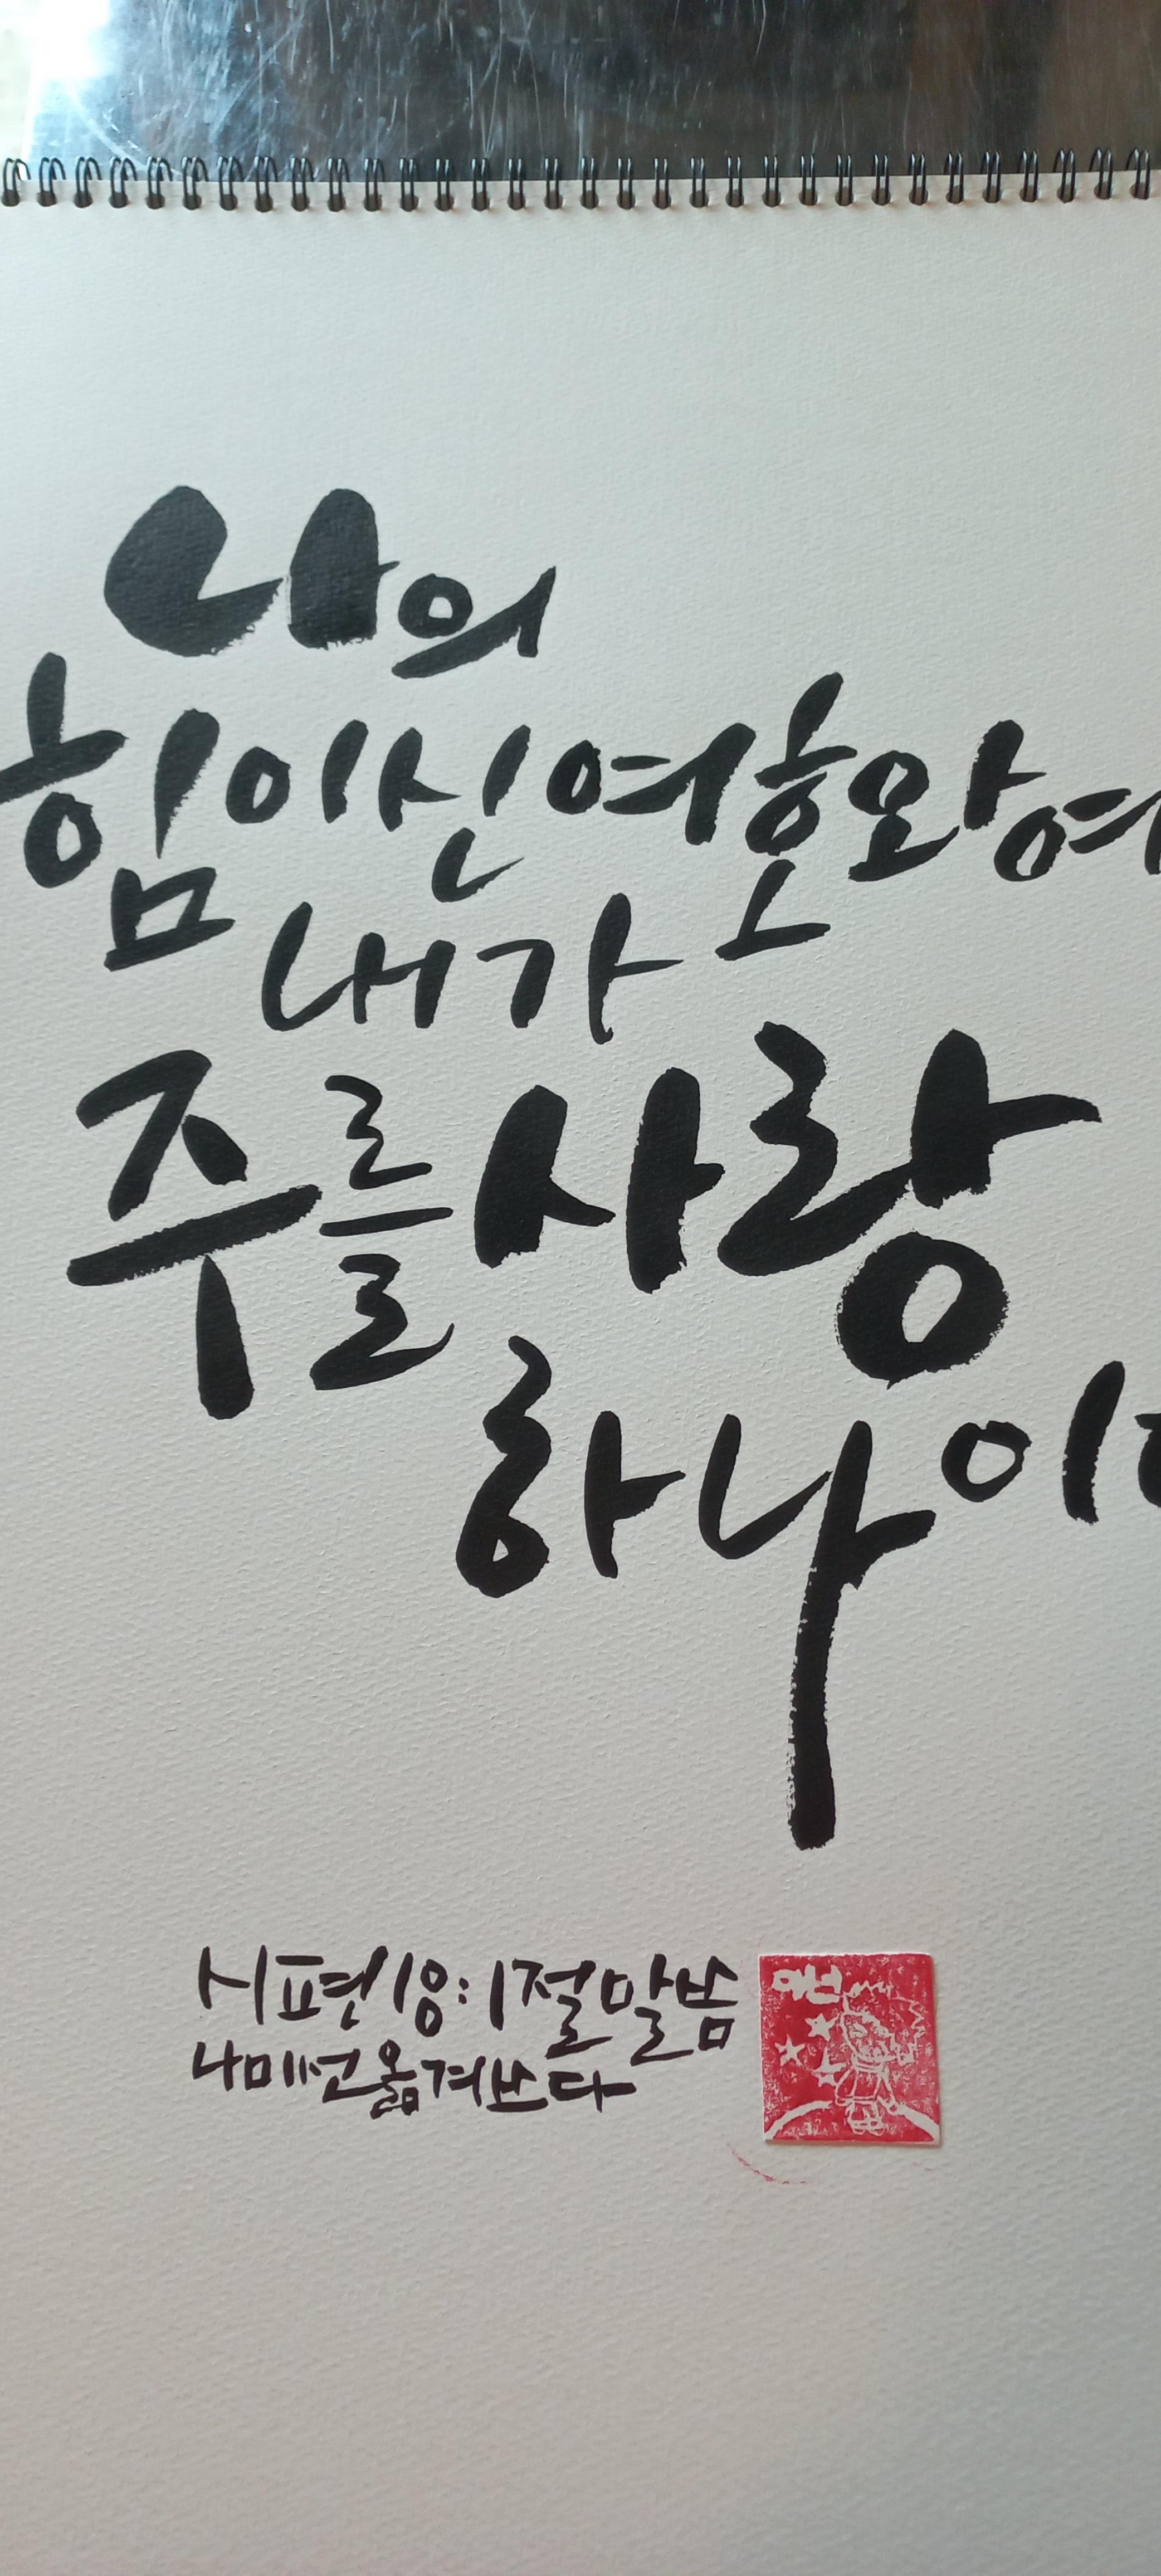 나의
힘이신 여호와여
내가
주를 사랑
하나이
시편 18:1절 말씀
나미선 옮겨쓰다